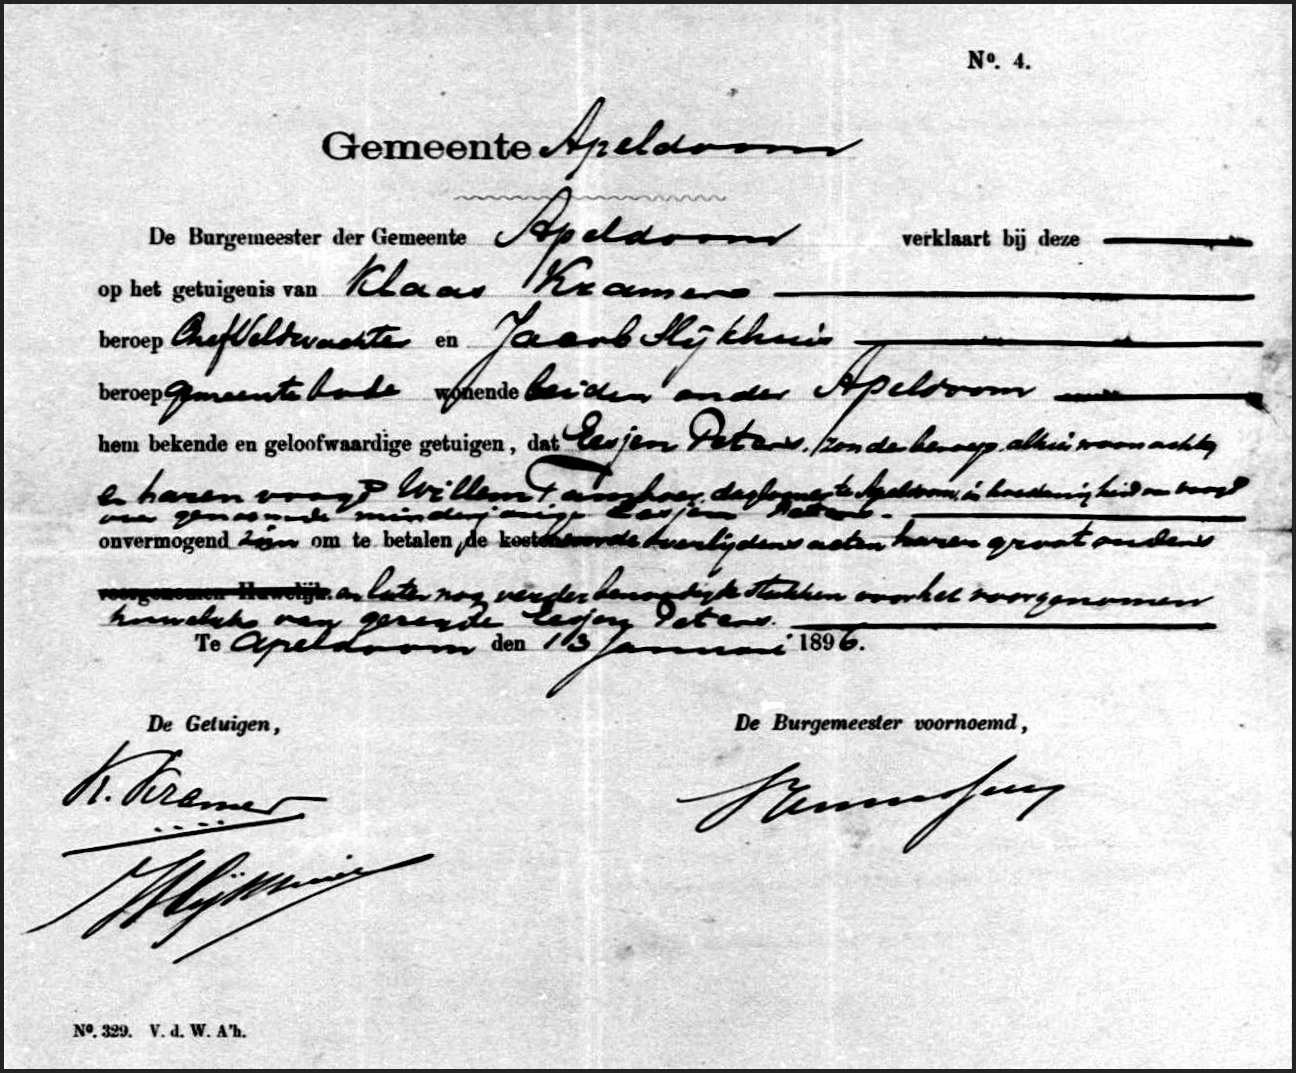 No. 4.
Gemeente Apeldoorn
De Burgemeester der Gemeente Apeldoorn verklaart bij deze
op het getuigenis van Klaas Kramers
beroep Chef Veldwachter en Jacob Slijkhuis
beroep gemeentebode wonende beiden onder Apeldoorn
hem bekende en geloofwaardige getuigen, dat Eesjen Peters, zonder beroep, alhier woonachtig
en haren voogd Willem, daglooner te Apeldoorn, in hoedanigheid van voogd
over genoemde minderjarige Eesjen Peters.
onvermogend zijn om te betalen, de kosten overlijdens acten haren grootouders
voorgenomen Huwelijk. en later nog verder benoodigde stukken voor het voorgenomen
huwelijk van gezegde Eesjen Peters.
Te Apeldoorn den 13 Januari 1896.
De Getuigen,
De Burgemeester voornoemd,
K. Kramer
J Slijkhuis
No. 329. V. d. W. A'h.